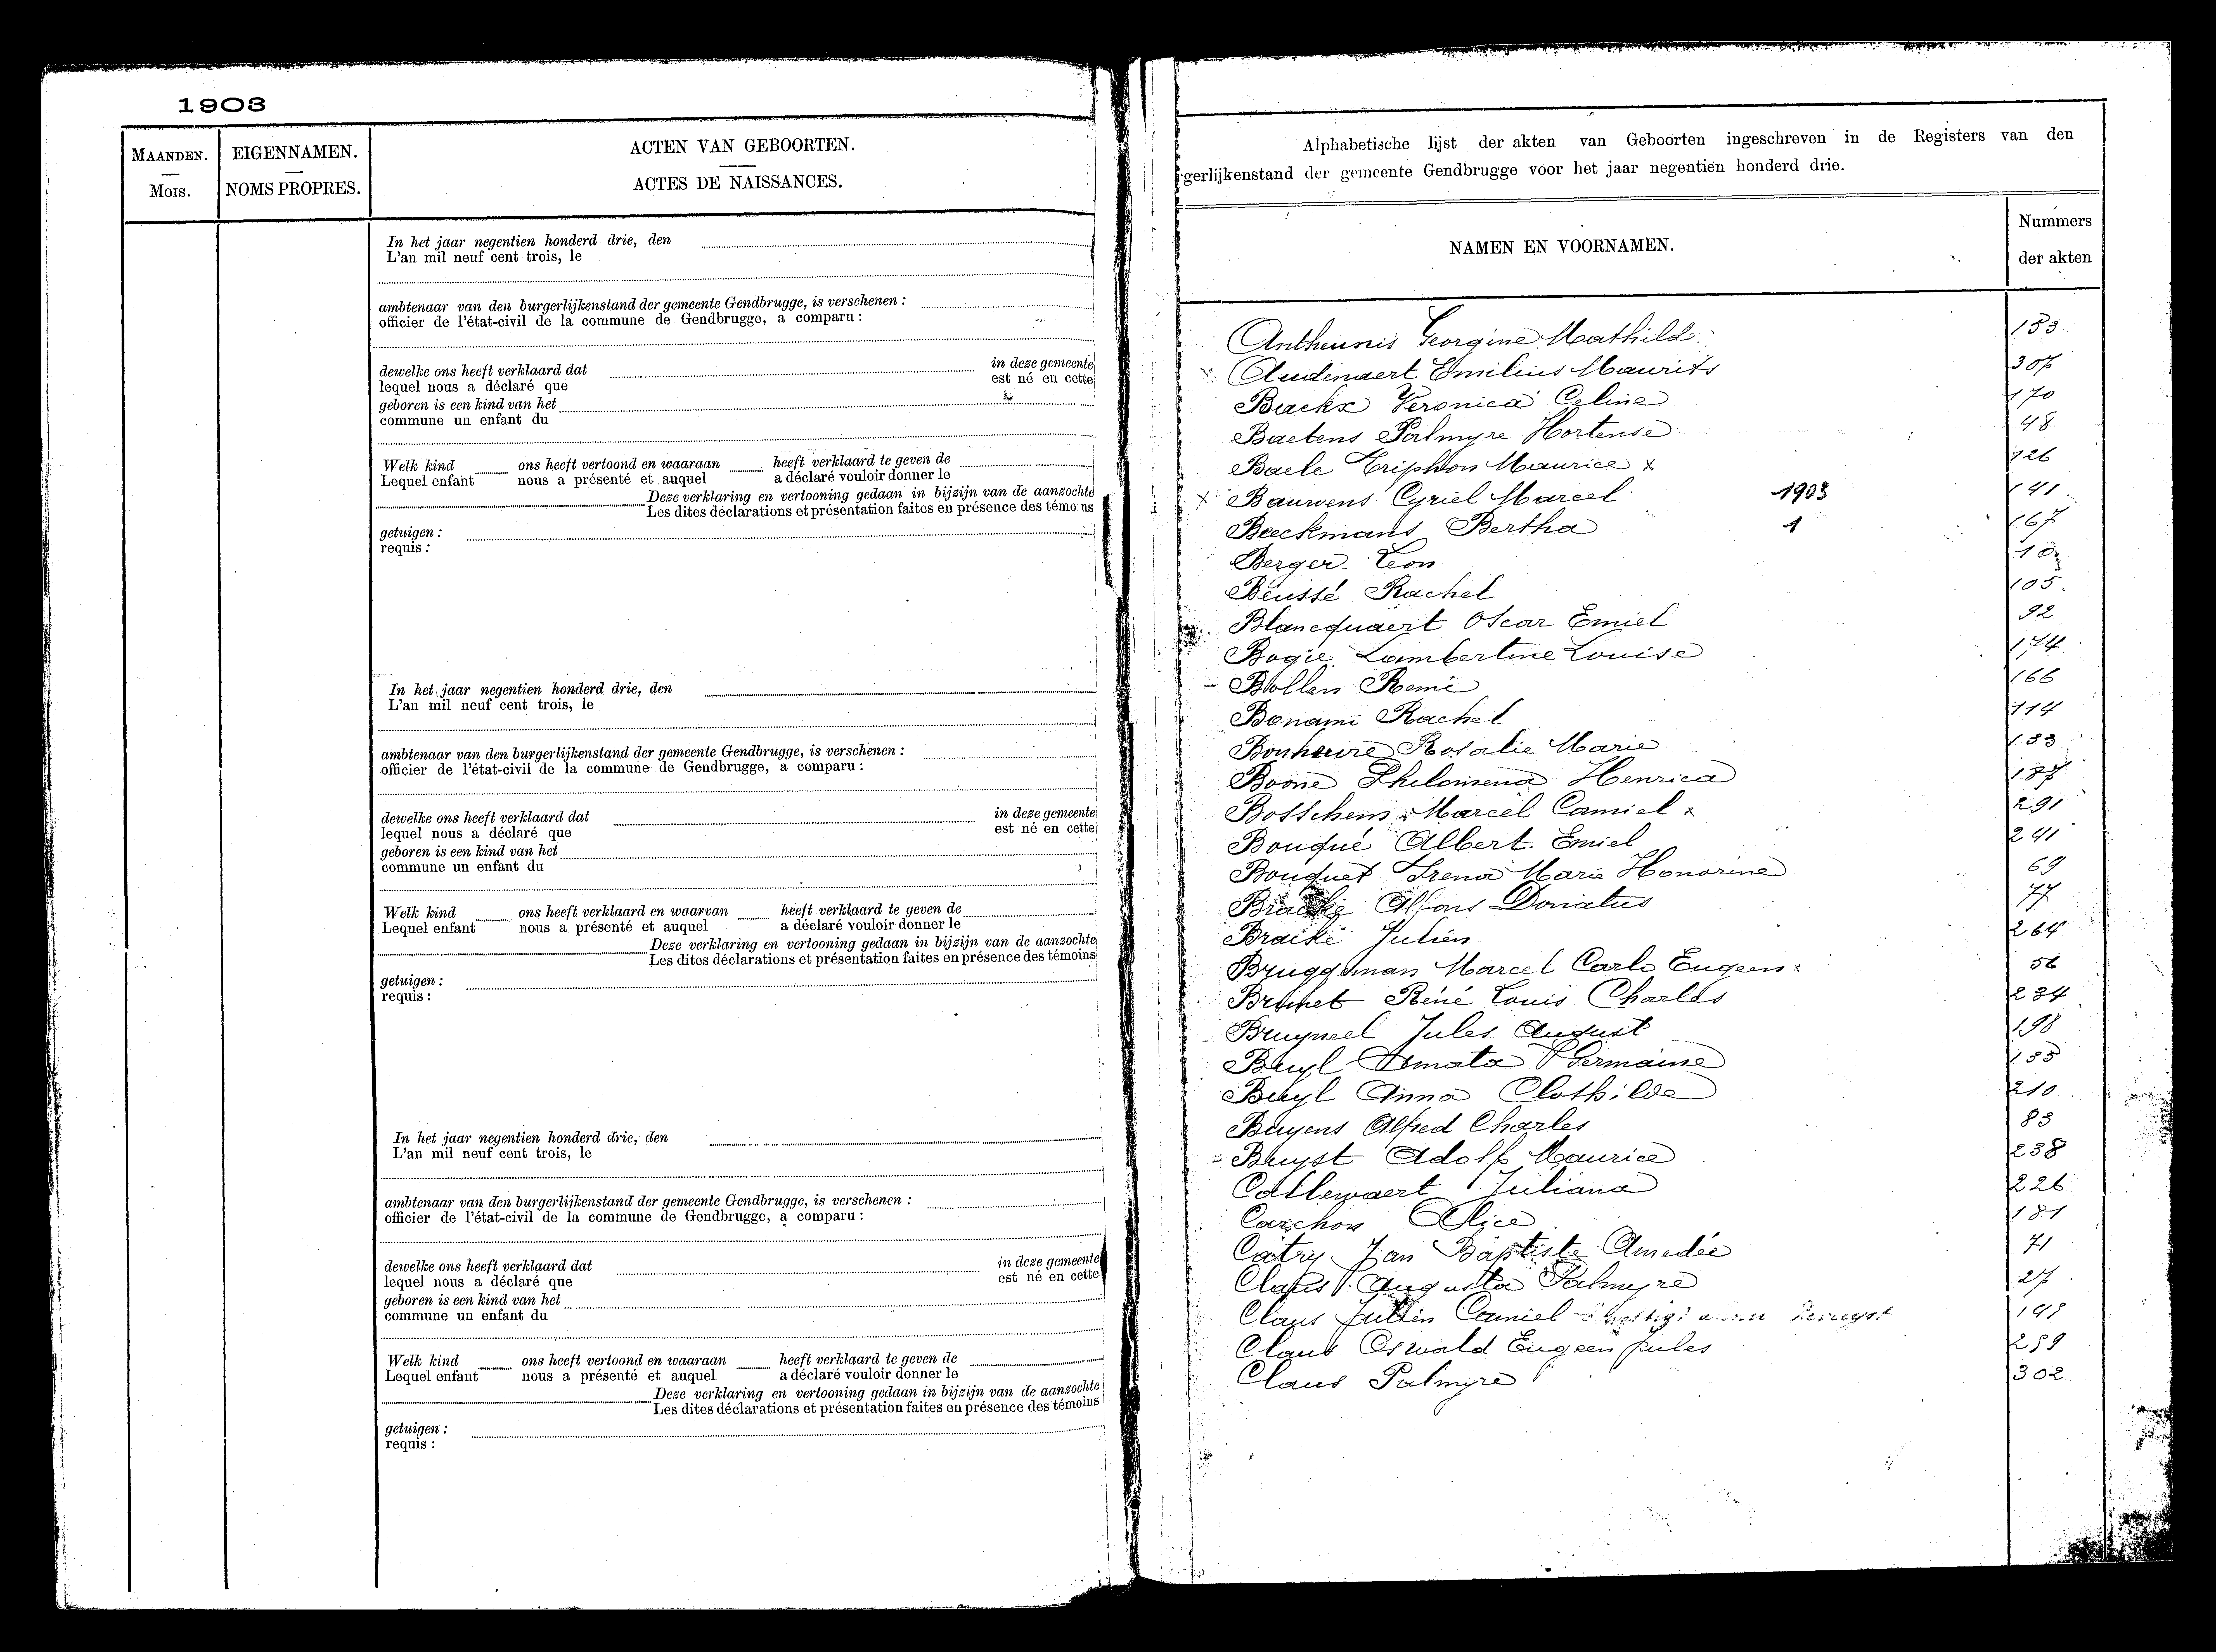 1903
MAANDEN.
Mois.
EIGENNAMEN.
NOMS PROPRES.
ACTEN VAN GEBOORTEN.
ACTES DE NAISSANCES.
In het jaar negentien honderd drie, den
L'an mil neuf cent trois, le
ambtenaar van den burgerlijkenstand der gemeente Gendbrugge, is verschenen :
officier de l'état-civil de la commune de Gendbrugge, a comparu :
dewelke ons heeft verklaard dat in deze gemeente
lequel nous a déclaré que est né en cette
geboren is een kind van het
commune un enfant du
Welk kind ons heeft vertoond en waaraan heeft verklaard te geven de
Lequel enfant nous a présenté et auquel a déclaré vouloir donner le
Deze verklaring en vertooning gedaan in bijzijn van de aanzochte
Les dites déclarations et présentation faites en présence des témoins
getuigen :
requis :
In het jaar negentien honderd drie, den
L'an mil neuf cent trois, le
ambtenaar van den burgerlijkenstand der gemeente Gendbrugge, is verschenen :
officier de l'état-civil de la commune de Gendbrugge, a comparu :
dewelke ons heeft verklaard dat in deze gemeente
lequel nous a déclaré que est né en cette
geboren is een kind van het
commune un enfant du
Welk kind ons heeft verklaard en waarvan heeft verklaard te geven de
Lequel enfant nous a présenté et auquel a déclaré vouloir donner le
Deze verklaring en vertooning gedaan in bijzijn van de aanzochte
Les dites déclarations et présentation faites en présence des témoins
getuigen :
requis :
In het jaar negentien honderd drie, den
L'an mil neuf cent trois, le
ambtenaar van den burgerlijkenstand der gemeente Gendbrugge, is verschenen :
officier de l'état-civil de la commune de Gendbrugge, a comparu :
dewelke ons heeft verklaard dat in deze gemeente
lequel nous a déclaré que est né en cette
geboren is een kind van het
commune un enfant du
Welk kind ons heeft vertoond en waaraan heeft verklaard te geven de
Lequel enfant nous a présenté et auquel a déclaré vouloir donner le
Deze verklaring en vertooning gedaan in bijzijn van de aanzochte
Les dites déclarations et présentation faites en présence des témoins
getuigen :
requis :
Alphabetische lijst der akten van Geboorten ingeschreven in de Registers van den
gerlijkenstand der gemeente Gendbrugge voor het jaar negentien honderd drie.
NAMEN EN VOORNAMEN.
Nummers
der akten
Antheunis Georgine Mathild 153
x Audenaert Emilius Maurits 307
Backx Veronica Celine 170
Baetens Palmyre Hortense 48
Baele Triphon Maurice x 126
x Bauwens Cyriel Marcel 1903 141
Beeckmans Bertha 1 167
Berger Leon 10
Beussé Rachel 105
Blancquaert Oscar Emiel 92
Bogie Lambertine Louise 174
- Bollen Remi 166
Bonami Rachel 114
Bonheure Rosalie Marie 133
Boone Philomena Henrica 187
Bosschem Marcel Camiel x 291
Bouqué Albert Emiel 241
Bouquet Irena Marie Honorine 69
Alfons Donatus 77
Julien 264
Bruggeman Marcel Carlo Eugeen x 56
Brunet Réné Louis Charles 234
Bruyneel Jules August 198
Buyl Amata Germaine 135
Buyl Anna Clothilde 210
Buyens Alfred Charles 83
- Buyst Adolf Maurice 238
Callewaert Juliana 226
Carchon Alice 181
Catry Jan Baptiste Amedée 71
Claus Augusta Palmyre 27
Claus Julien Camiel
Claus Oswald Eugeen Jules 259
Claus Palmyre 302